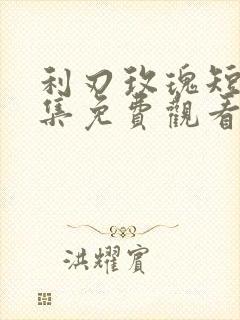 利刃玫瑰短
集免費觀看
洪耀賓